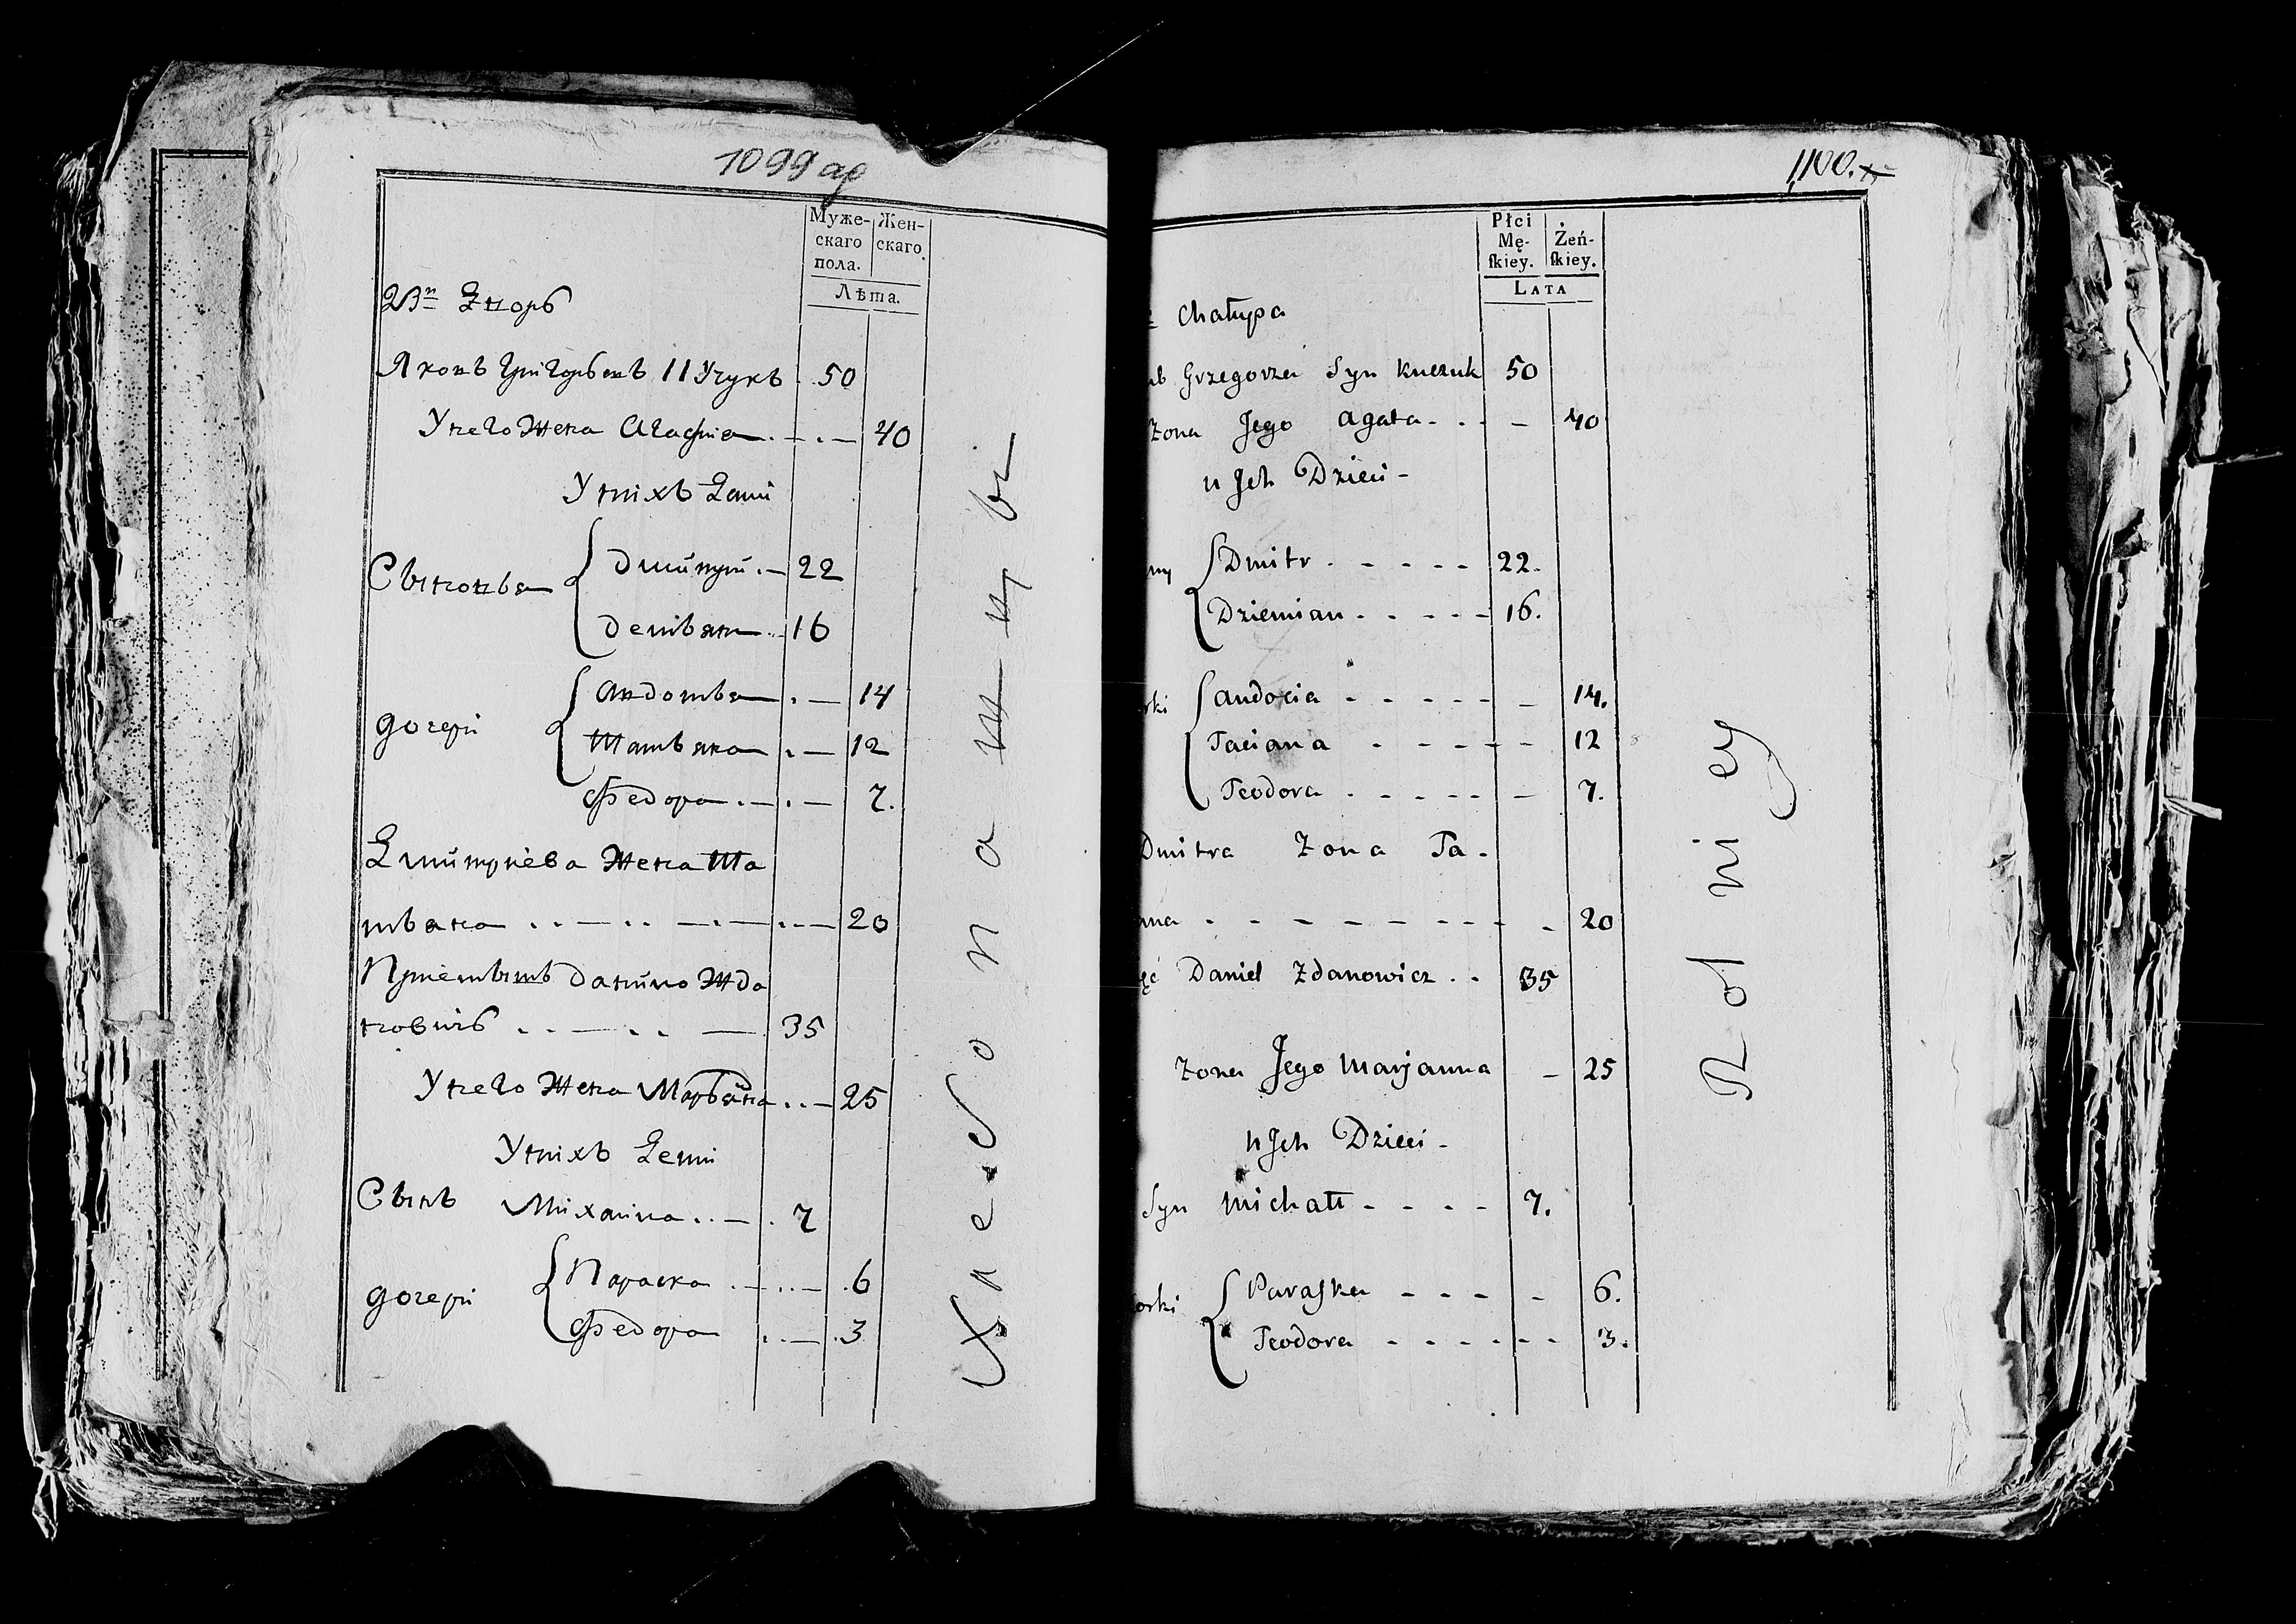 1099 ар
Муже-
скаго
пола.
Жен-
скаго.
Лѣта.
Дворъ
Яковъ Григорьевъ 50
У него Жена Агафия 40
У нихъ Дети
Сыновья
Дмитрий 22
Демьянъ 16
дочери
Авдотья 14
Татьяна 12
Федора 7.
Дмитриева Жена Та
тьяна 20
Приемышъ Данило Жда
новичъ 35
У него Жена Марьяна 25
У нихъ Дети
Сынъ Михайла 7
дочери
Параска 6
Федора 3
Хлебопашцы
1100.
Płci
Mę-
ſkiey.
Żeń-
ſkiey.
LATA
Chałupa
Grzegorza Syn Kuczuk 50
Zona Jego Agata 40
u Jch Dzieci -
Dmitr 22.
Dziemian 16.
Audocia 14.
Taciana 12
Teodora 7.
Dmitra Zona Ta-
20
Daniel Zdanowicz 35
Zona Jego Marjanna 25
u Jch Dzieci -
Syn Michałł 7.
Paraſka 6.
Teodora 3.
Rolniey